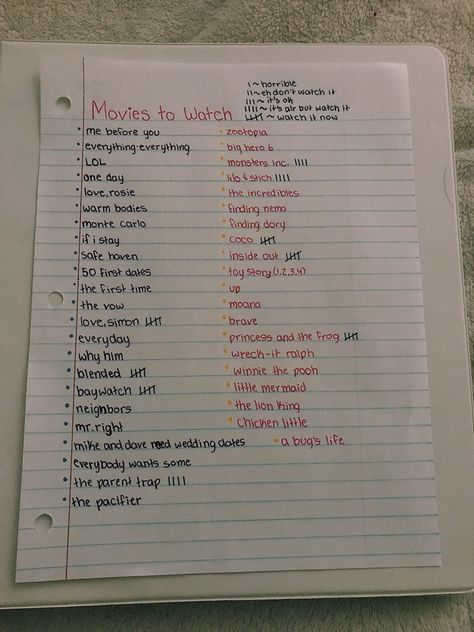 Movies to Watch
I ~ horrible
II ~ eh don't watch it
III ~ it's ok
IIII ~ it's alr but watch it
𝍸 ~ watch it now
• me before you
• everything-everything
• LOL
• one day
• love, rosie
• warm bodies
• monte carlo
• if i stay
• safe haven
• 50 first dates
• the first time
• the vow
• love, simon 𝍸
• everyday
• why him
• blended 𝍸
• baywatch 𝍸
• neighbors
• mr. right
• mike and dave need wedding dates
• everybody wants some
• the parent trap IIII
• the pacifier
• zootopia
• big hero 6
• monsters inc. IIII
• lilo & stich IIII
• the incredibles
• finding nemo
• finding dory
• coco 𝍸
• inside out 𝍸
• toy story (1,2,3,4)
• up
• moana
• brave
• princess and the frog 𝍸
• wreck-it ralph
• winnie the pooh
• little mermaid
• the lion king
• chicken little
• a bug's life